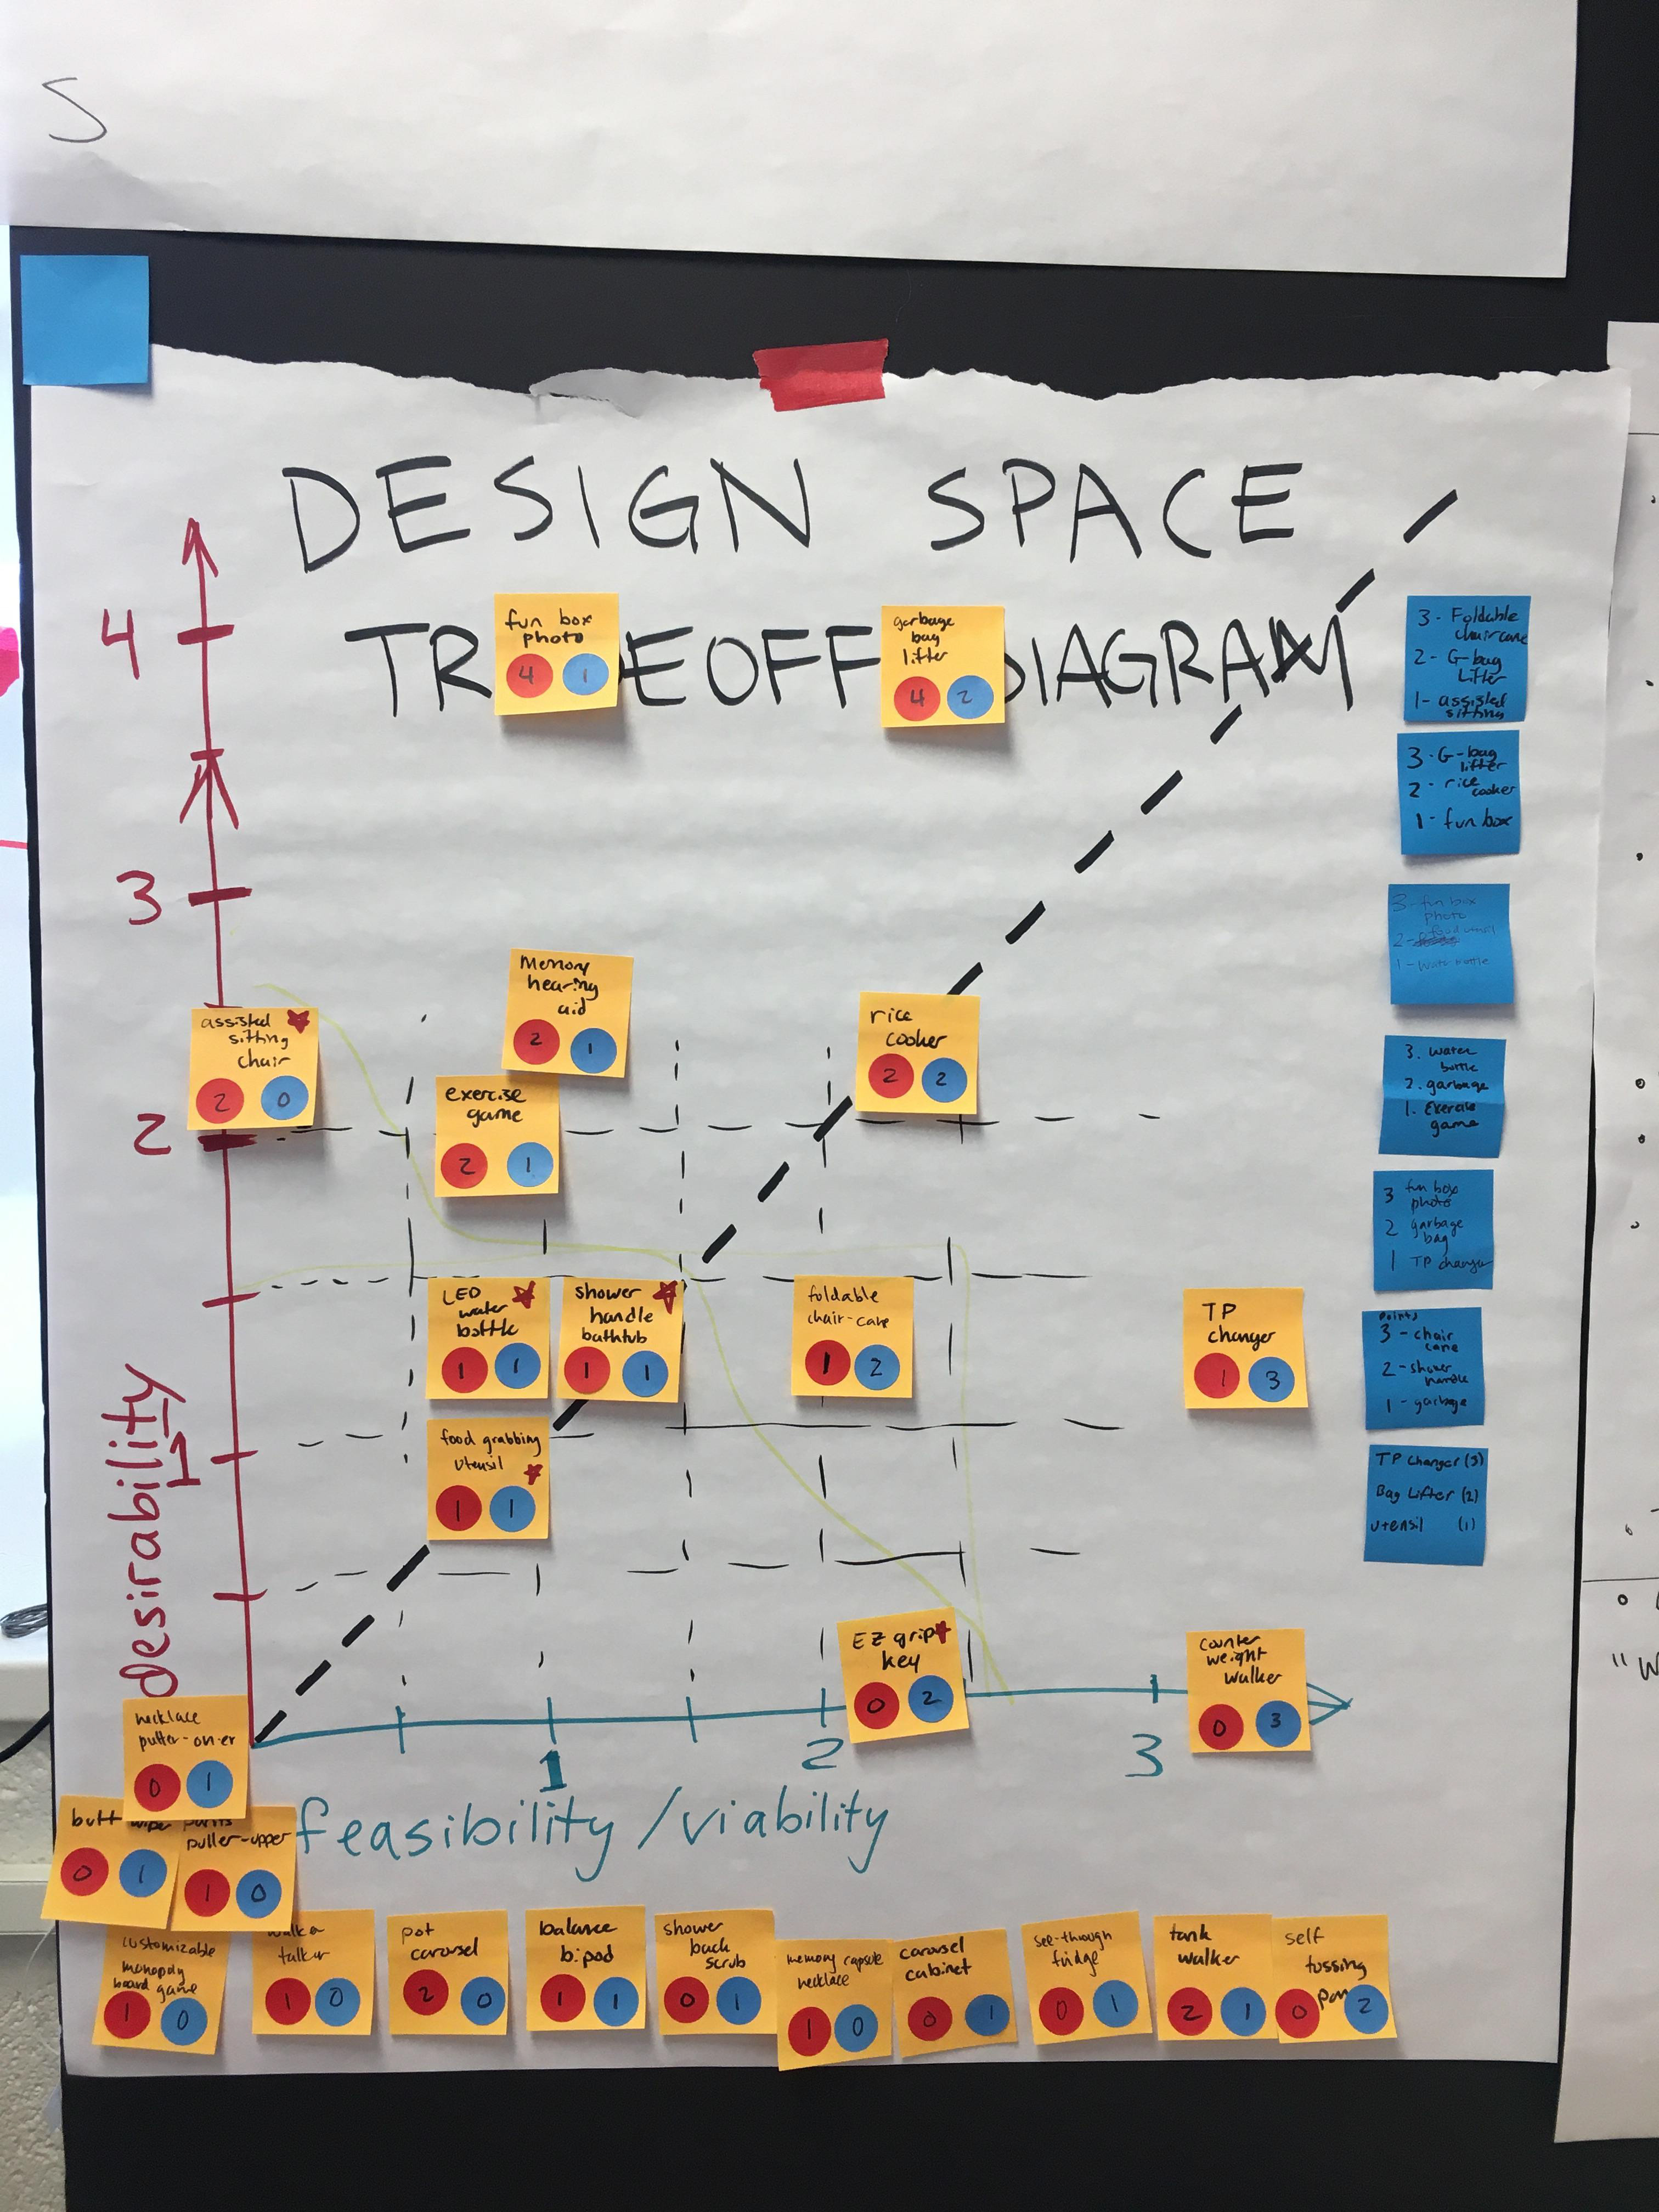 S
DESIGN SPACE
TR DEOFF DIAGRAM
4
3
2
1
Desirability
1
2
3
feasibility / viability
fun box
photo
4 1
garbage
bag
lifter
4 2
Memory
hearing
aid
2 1
assisted
sitting
chair
2 0
rice
cooker
2 2
exercise
game
2 1
LED
water
bottle
1 1
shower
handle
bathtub
1 1
foldable
chair-cane
1 2
TP
changer
1 3
food grabbing
utensil
1 1
EZ grip
key
0 2
counter
weight
walker
0 3
necklace
putter-on-er
0 1
butt wiper
0 1
pants
puller-upper
1 0
customizable
monopoly
board game
1 0
talker
1 0
pot
carousel
2 0
balance
bipod
1 1
shower
back
scrub
0 1
memory capsule
necklace
1 0
carousel
cabinet
0 1
see-through
fridge
0 1
tank
walker
2 1
self
tossing
pan
0 2
3 - Foldable
chair cane
2 - G-bag
Lifter
1 - assisted
sitting
3 - G-bag
lifter
2 - rice
cooker
1 - fun box
3 - fun box
photo
2 - food utensil
1 - water bottle
3. water
bottle
2. garbage
1. Exercise
game
3 fun box
photo
2 garbage
bag
1 TP changer
points
3 - chair
cane
2 - shower
handle
1 - garbage
TP changer (3)
Bag Lifter (2)
utensil (1)
"W